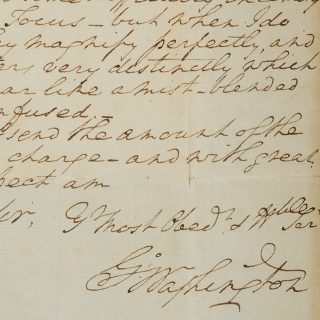 focus – but when I do
magnify perfectly, and
very distinctly which
like a mist – blended
nfused –
send the amount of the
charge – and with great
pect am
Yr Most Obedt. & Hble Ser
G:Washington